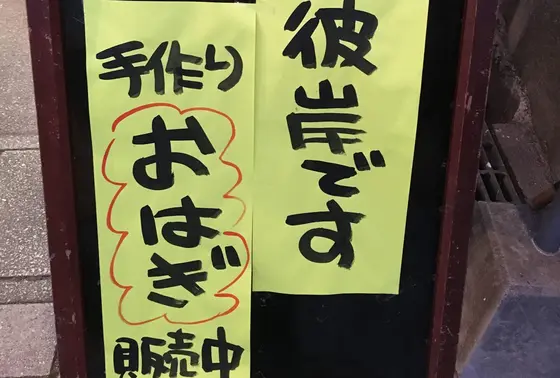 彼岸です
手作り
おはぎ
販売中